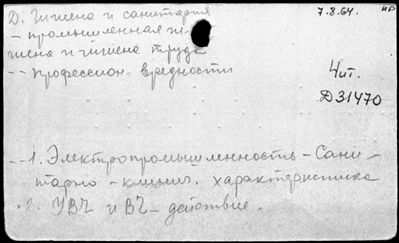 Д. Гигиена и санитария
7.8.64. ИБ
- промышленная ги-
гиена и гигиена труда
-- професссион. вредности
Чит.
Д31470
--1. Электропромышленность - Сани-
тарно - клинич. характеристика
-2. УВЧ и ВЧ - действие.